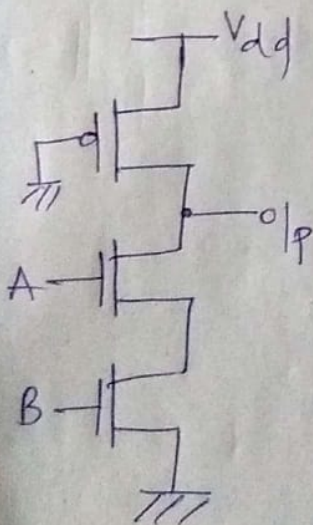 Vdd
o/p
A
B